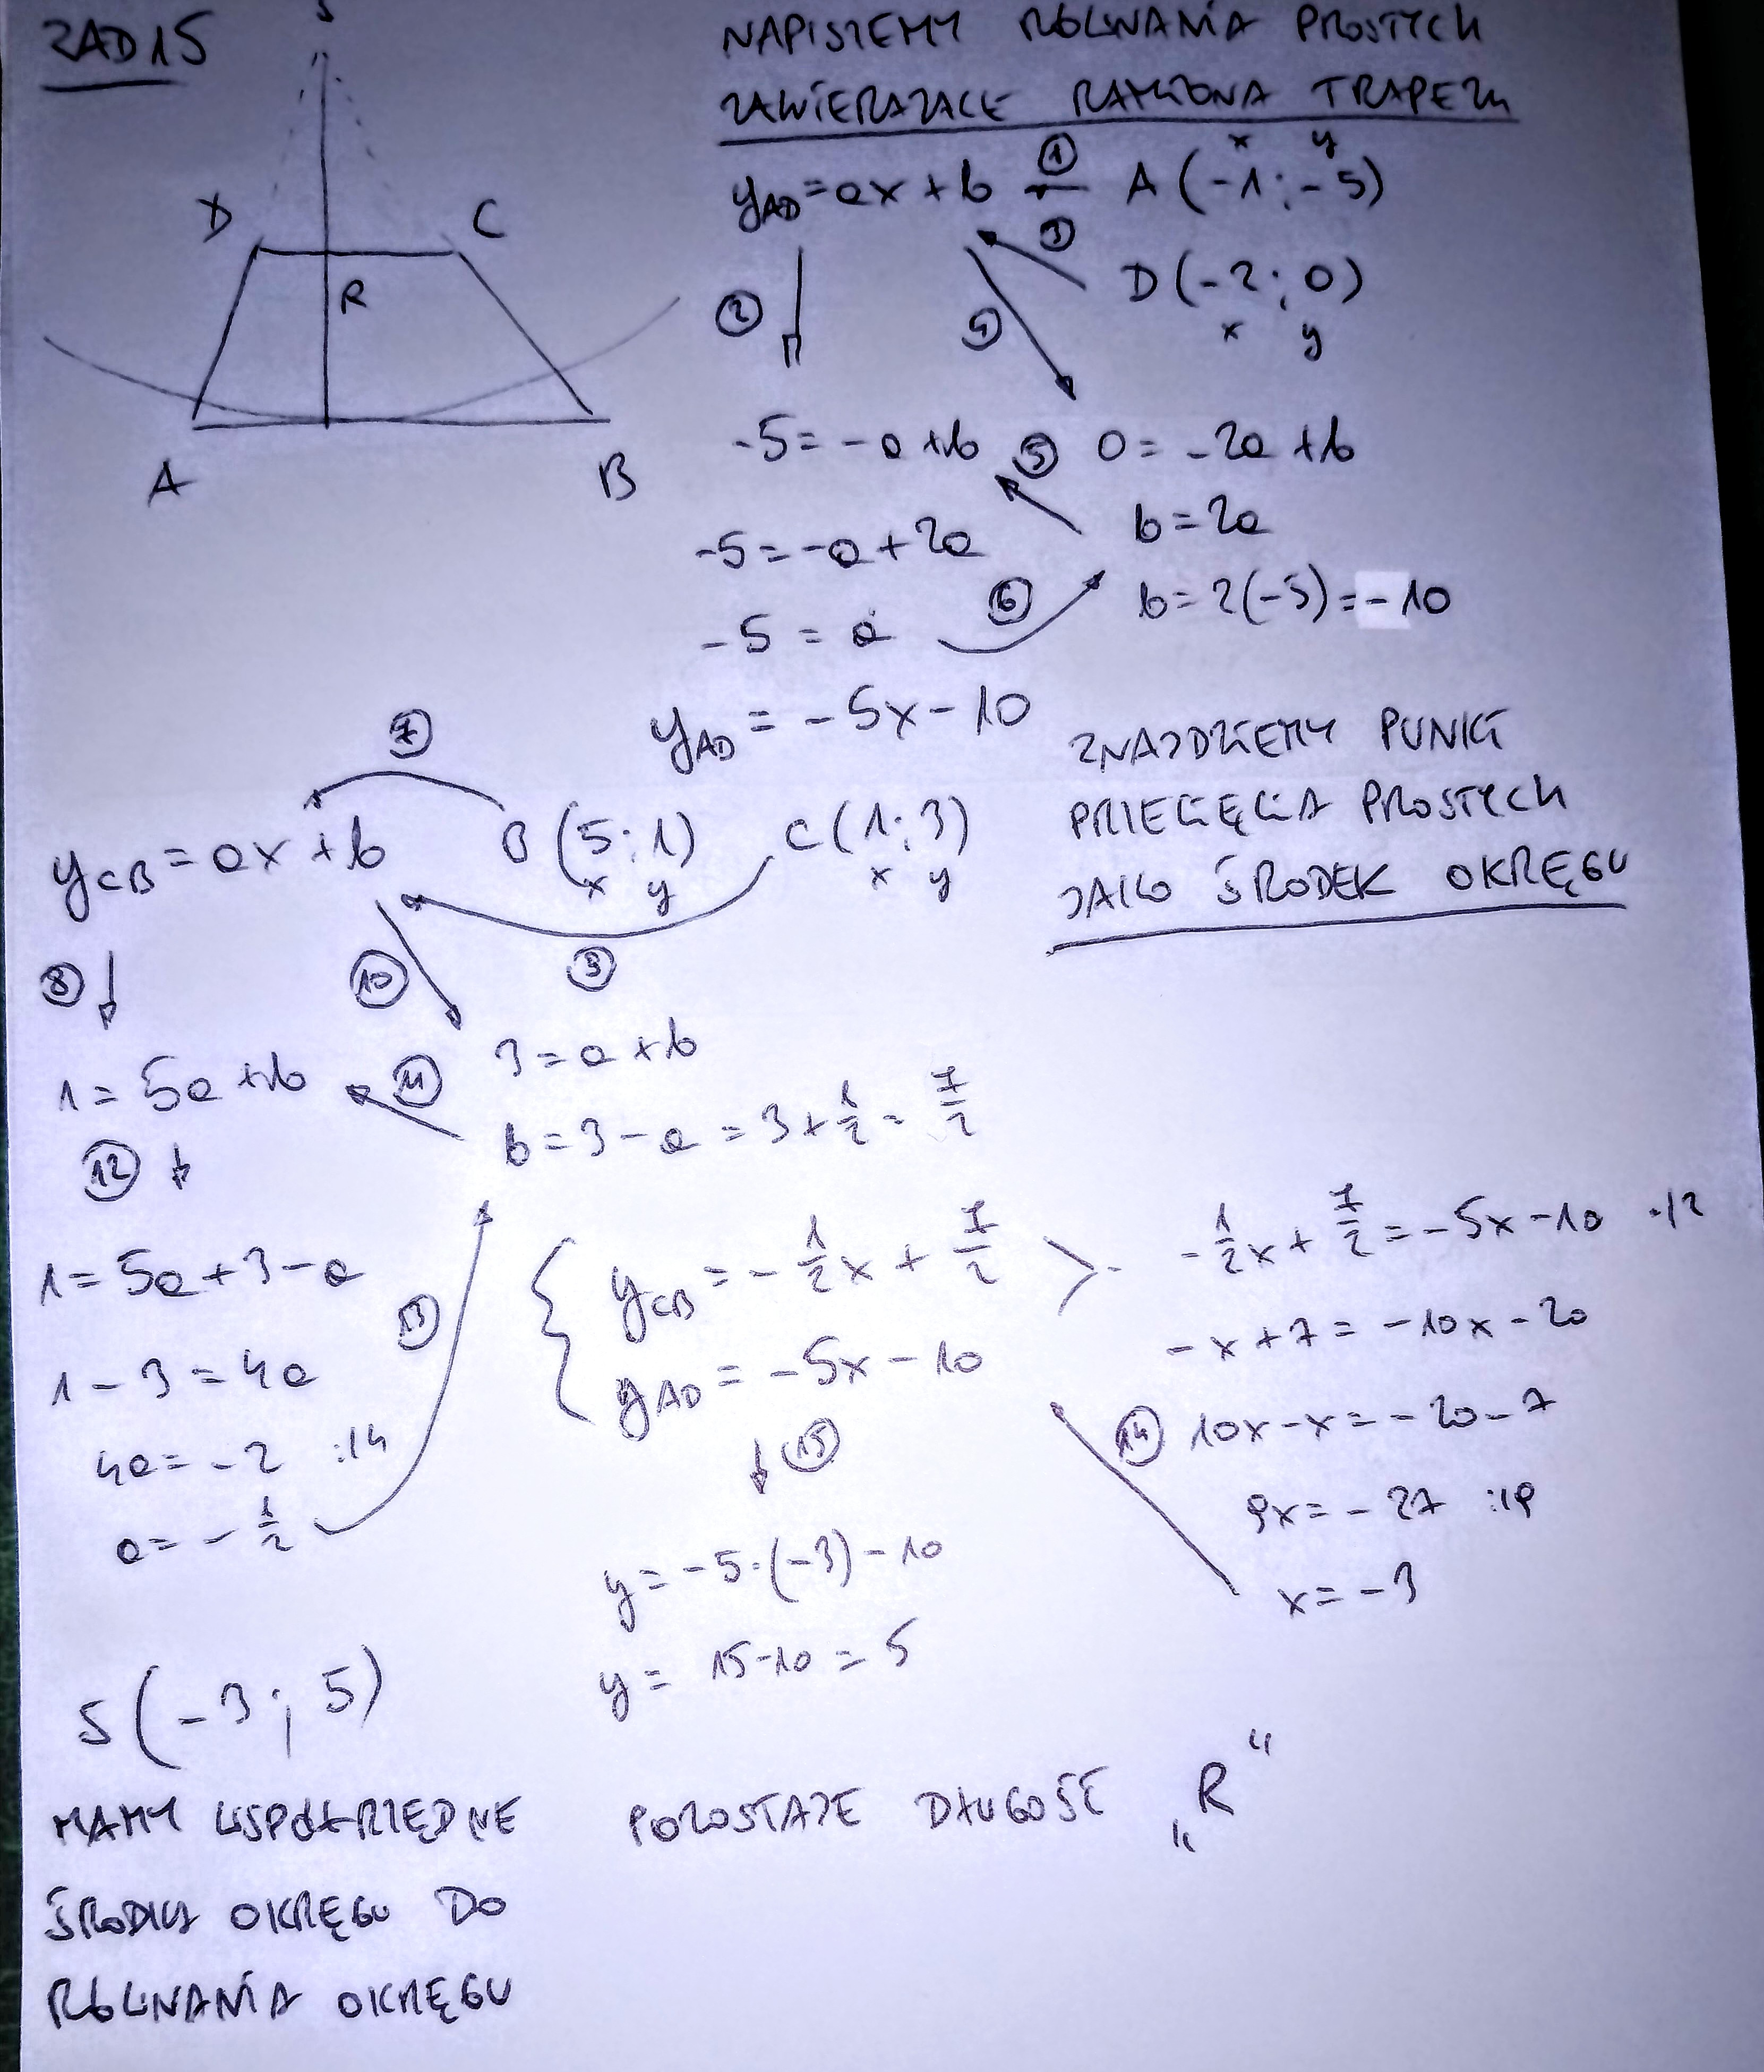 ZAD 15
S
D
C
R
A
B
NAPISZEMY RÓWNANIA PROSTYCH
ZAWIERAJĄCE RAMIONA TRAPEZU
y_AD = ax + b ① A (-1; -5)
x y
③ D (-2; 0)
x y
② ④
-5 = -a + b ⑤ 0 = -2a + b
b = 2a
-5 = -a + 2a
⑥ b = 2(-5) = -10
-5 = a
y_AD = -5x - 10
⑦
y_CB = ax + b B (5; 1) C (1; 3)
x y x y
ZNAJDZIEMY PUNKT
PRZECIĘCIA PROSTYCH
JAKO ŚRODEK OKRĘGU
⑧ ⑩ ⑨
1 = 5a + b ⑪ 3 = a + b
b = 3 - a = 3 + 1/2 = 7/2
⑫
1 = 5a + 3 - a
⑬
1 - 3 = 4a
4a = -2 :|4
a = - 1/2
{ y_CB = - 1/2 x + 7/2
y_AD = -5x - 10
- 1/2 x + 7/2 = -5x - 10 ·|2
-x + 7 = -10x - 20
⑭ 10x - x = -20 - 7
9x = -27 :|9
x = -3
⑮
y = -5·(-3) - 10
y = 15-10 = 5
S (-3; 5)
MAMY WSPÓŁRZĘDNE
ŚRODKA OKRĘGU DO
RÓWNANIA OKRĘGU
POZOSTAJE DŁUGOŚĆ „R"